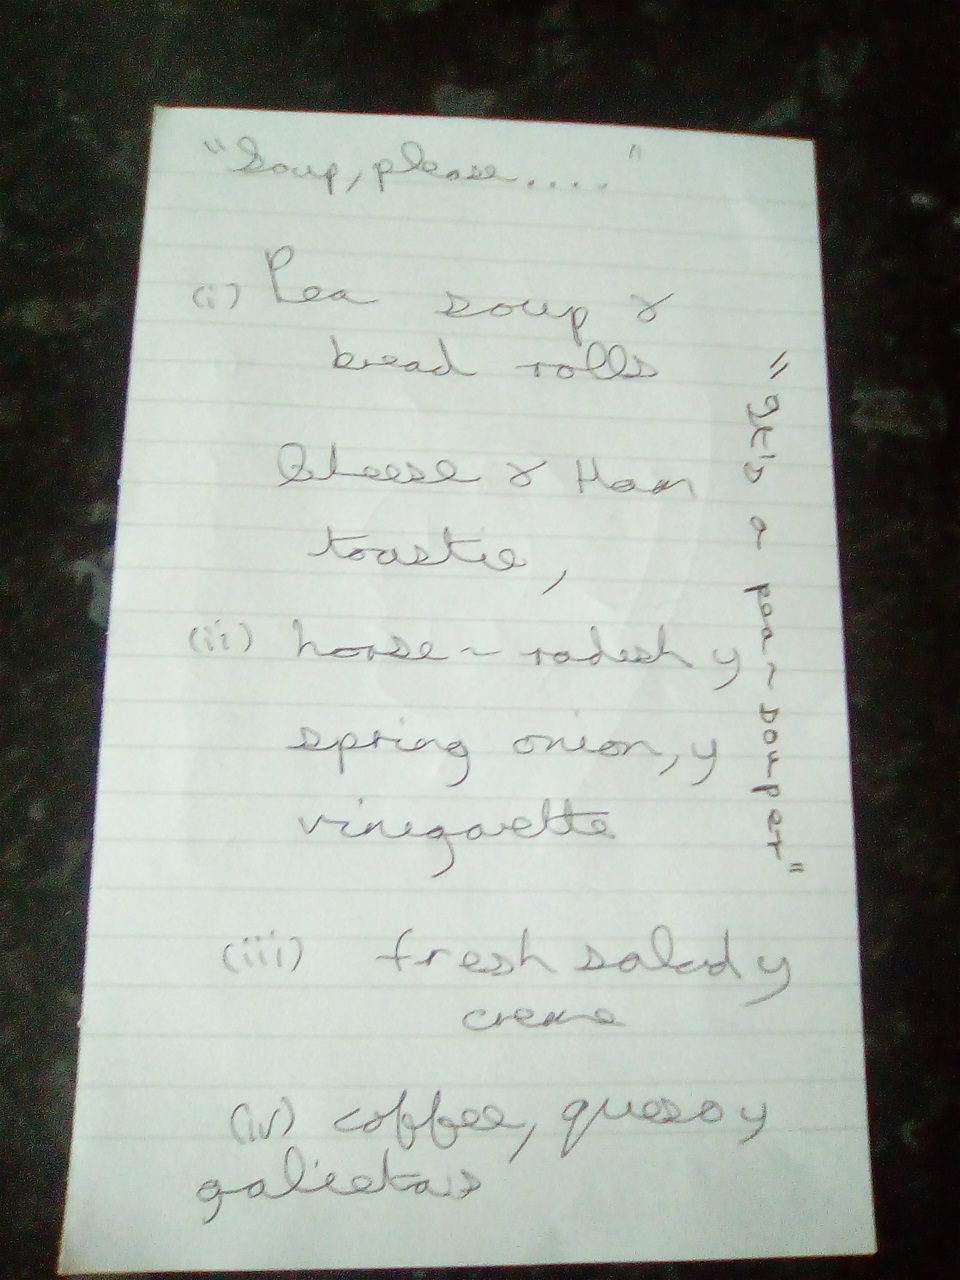 "Soup, please.... "
(i) Pea soup &
bread rolls
Cheese & Ham
toastie,
(ii) horse~radish y
spring onion, y
vinegarette
(iii) fresh salad y
creme
(iv) coffee, queso y
galietas
"It's a pea~souper"